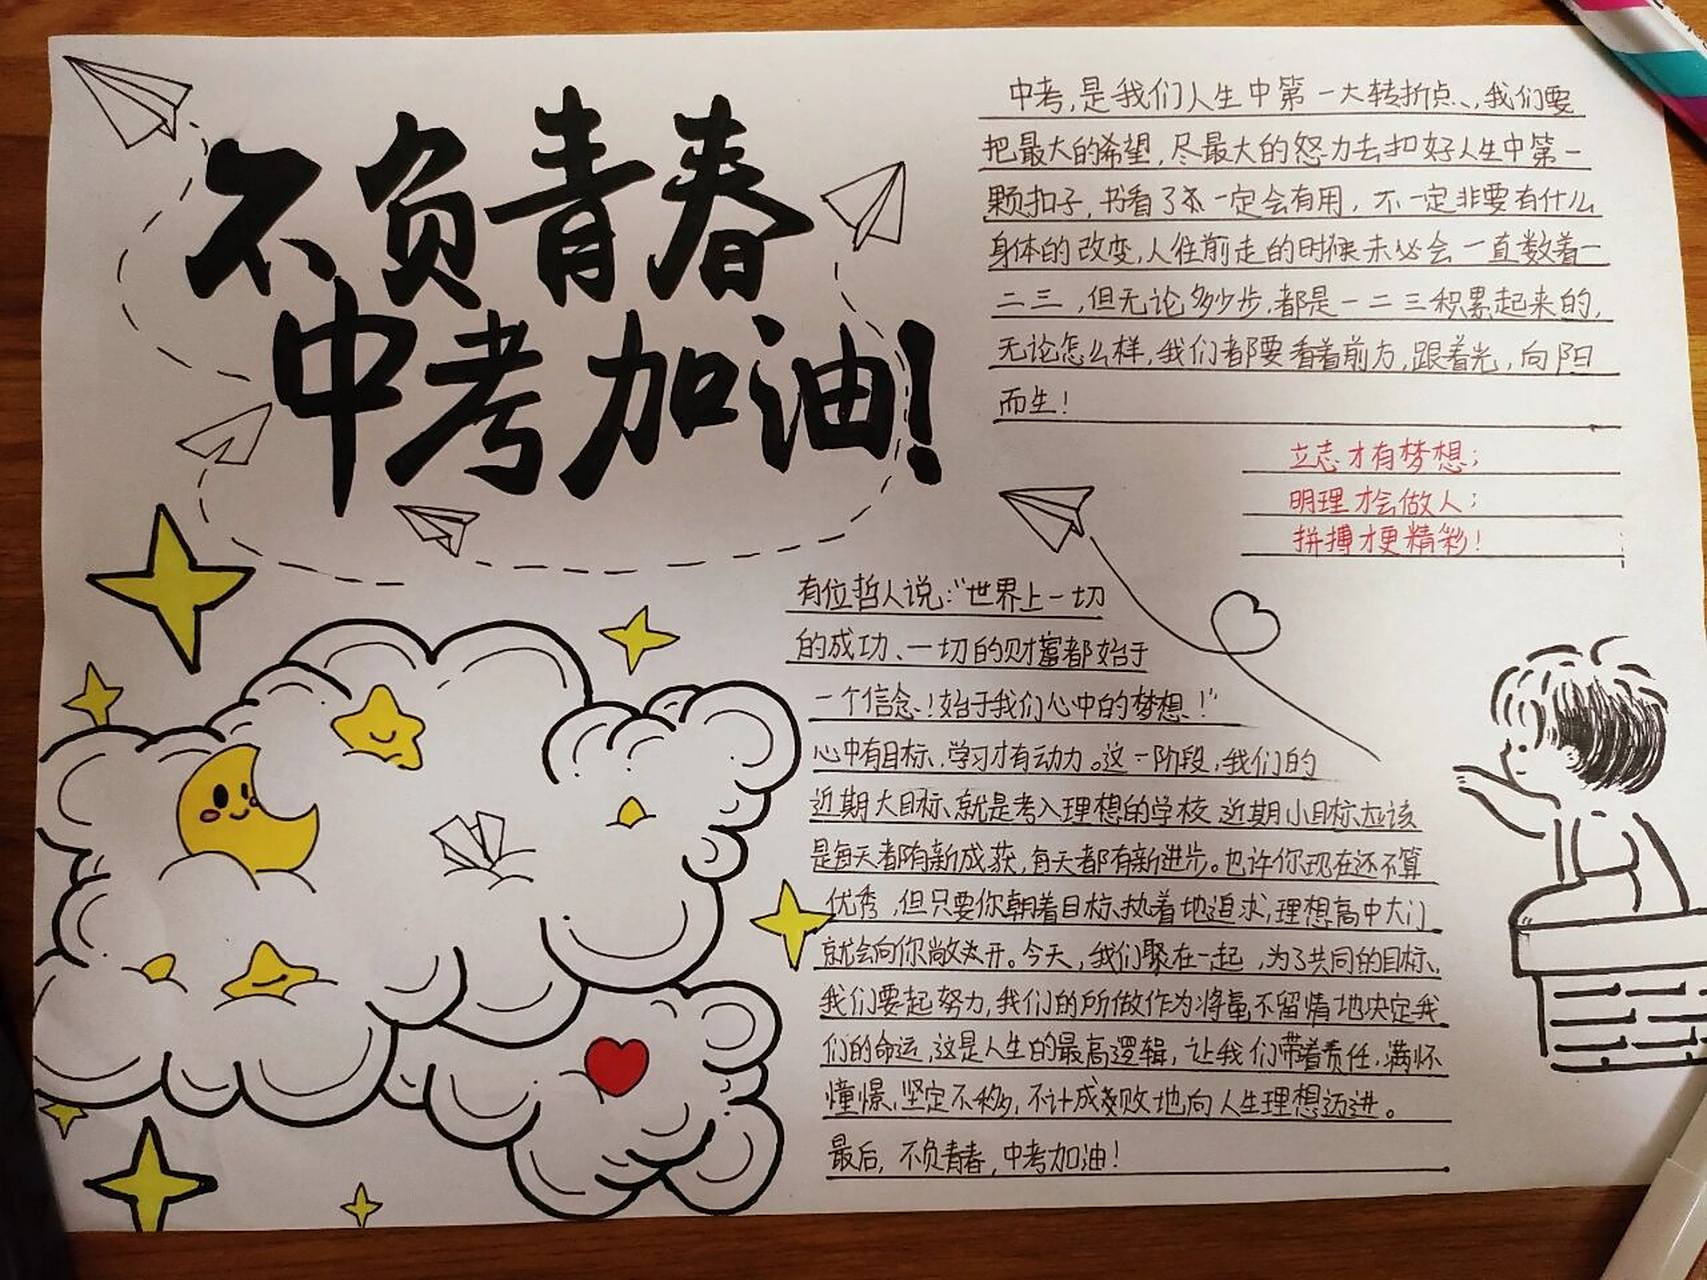 不负青春
中考加油!
中考,是我们人生中第一大转折点、,我们要
把最大的希望,尽最大的努力去扣好人生中第一
颗扣子,书看了不一定会有用,不一定非要有什么
身体的改变,人往前走的时候未必会一直数着一
二三,但无论多少步,都是一二三积累起来的,
无论怎么样,我们都要看着前方,跟着光,向阳
而生!
立志才有梦想;
明理才会做人;
拼搏才更精彩!
有位哲人说:“世界上一切
的成功、一切的财富都始于
一个信念、!始于我们心中的梦想、!”
心中有目标、学习才有动力。这一阶段,我们的
近期大目标、就是考入理想的学校、近期小目标、应该
是每天都有新成获,每天都有新进步。也许你现在还不算
优秀,但只要你朝着目标、执着地追求,理想高中大门
就会向你敞开。今天,我们聚在一起,为了共同的目标、
我们要起努力,我们的所做作为将毫不留情地决定我
们的命运,这是人生的最高逻辑,让我们带着责任,满怀
憧憬、坚定不移,不计成败地向人生理想迈进。
最后,不负青春,中考加油!